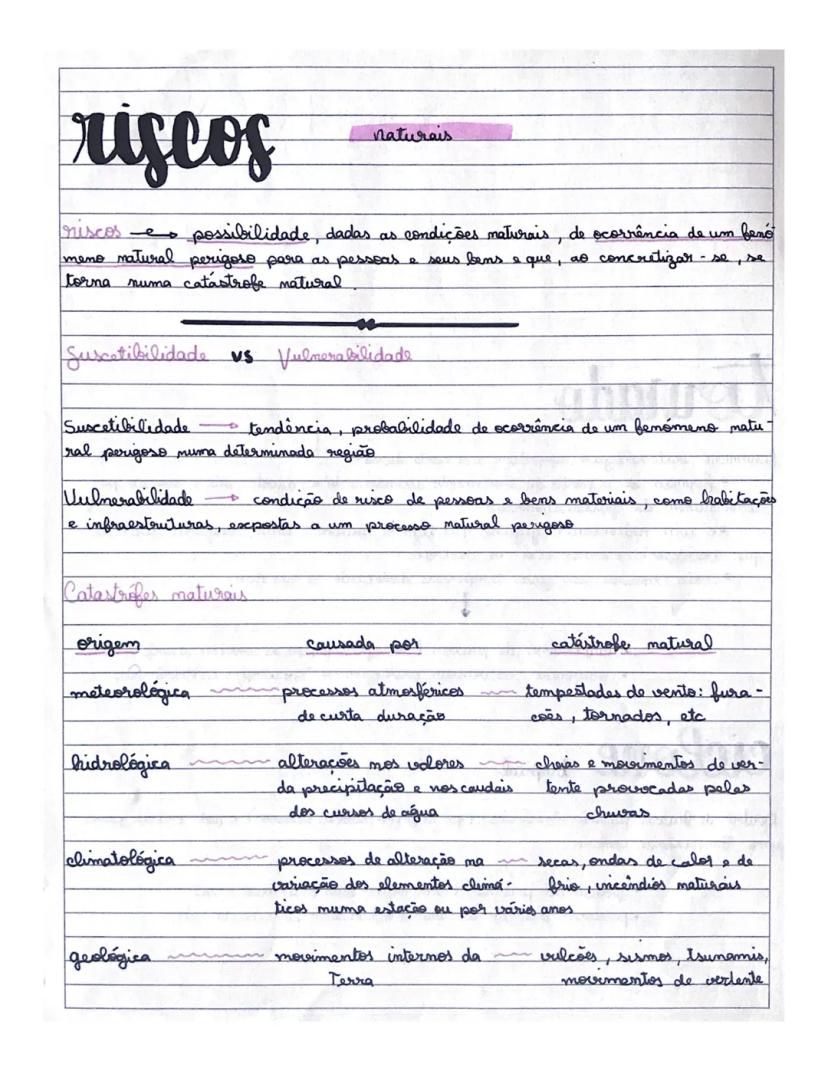 riscos naturais
riscos → possibilidade, dadas as condições naturais, de ocorrência de um fenó
meno natural perigoso para as pessoas e seus bens e que, ao concretizar-se, se
torna numa catástrofe natural.
Suscetibilidade vs Vulnerabilidade
Suscetibilidade → tendência, probabilidade de ocorrência de um fenómeno natu-
ral perigoso numa determinada região
Vulnerabilidade → condição de risco de pessoas e bens materiais, como habitações
e infraestruturas, expostas a um processo natural perigoso
Catastrófes naturais
origem causada por catástrofe natural
meteorológica processos atmosféricos tempestades de vento: fura-
de curta duração cões, tornados, etc
hidrológica alterações nos valores cheias e movimentos de ver-
da precipitação e nos caudais tente provocadas pelas
dos cursos de água chuvas
climatológica processos de alteração na secas, ondas de calor e de
variação dos elementos climá- frio, incêndios naturais
ticos numa estação ou por vários anos
geológica movimentos internos da vulcões, sismos, tsunamis,
Terra movimentos de vertente